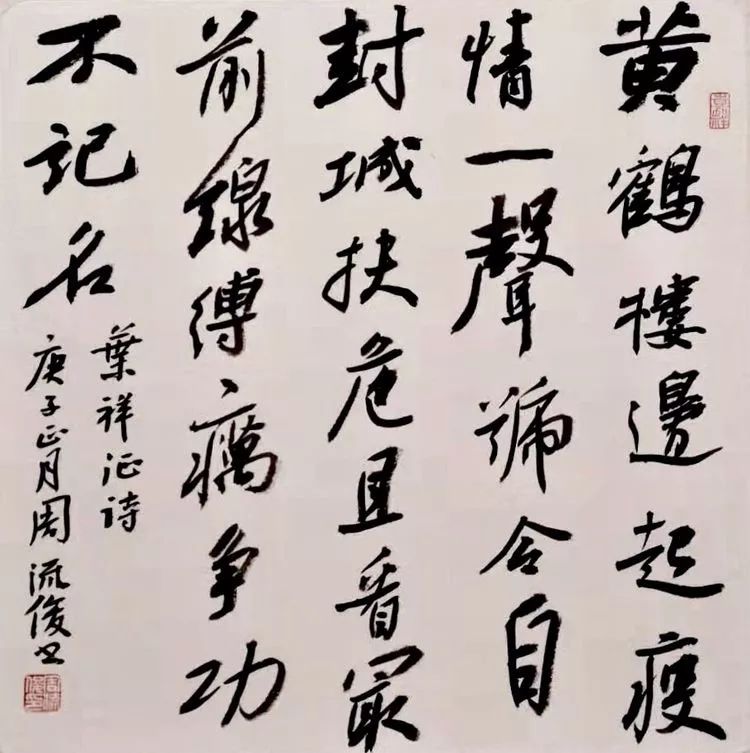 黄鶴樓邊起疫
情一聲號令自
封城扶危且看最
前線縛癘争功
不記名
葉祥沚詩
庚子正月周流俊书